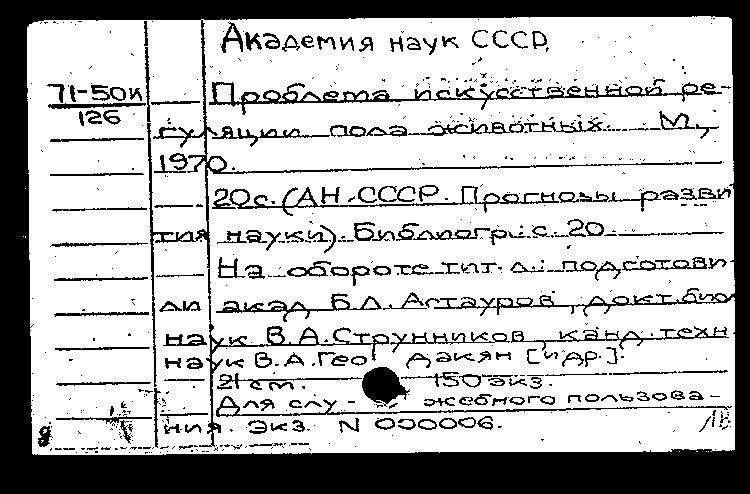 Академия наук СССР.
71-50к
126
Проблема искусственной ре-
гуляции пола животных. М.,
1970.
20с. (АН СССР. Прогнозы разви
тия науки). Библиогр.: с. 20
На обороте тит. л.: подготови-
ли акад Б.Л. Астауров, докт.био
наук В.А.Струнников, канд.техн
наук В.А.Гео дакян [и др.].
21 см. 150 экз.
Для слу- жебного пользова-
ния. Экз. N 000006.